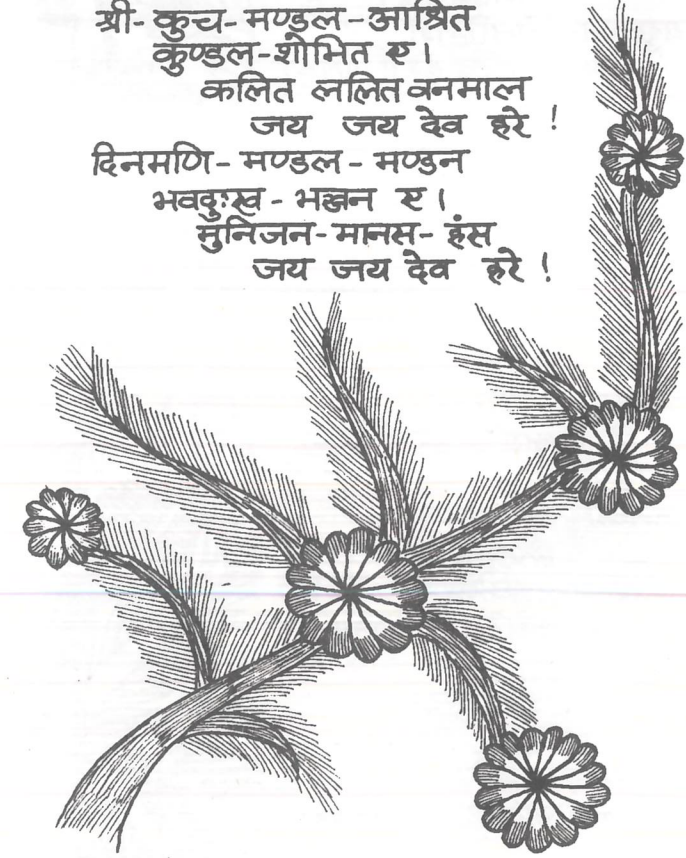 श्री-कुच-मण्डल-आश्रित
कुण्डल-शोभित ए।
कलित ललित वनमाल
जय जय देव हरे !
दिनमणि-मण्डल-मण्डन
भवदुःख-भञ्जन ए।
मुनिजन-मानस-हंस
जय जय देव हरे !